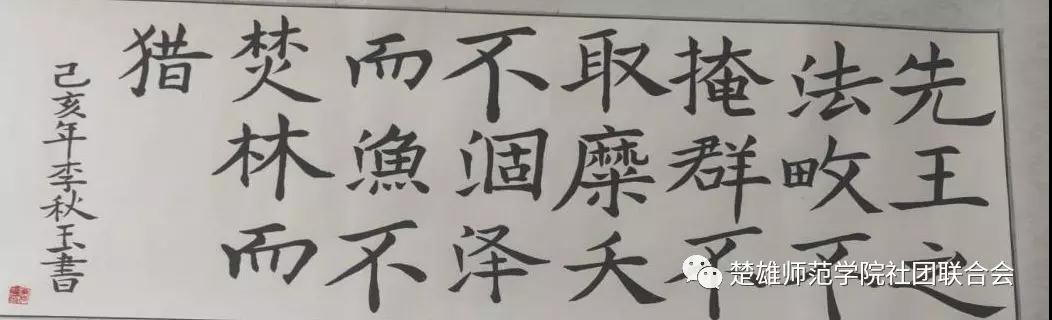 先王之
法畋不
掩群不
取糜夭
不涸泽
而漁不
焚林而
猎
己亥年李秋玉書
楚雄师范学院社团联合会